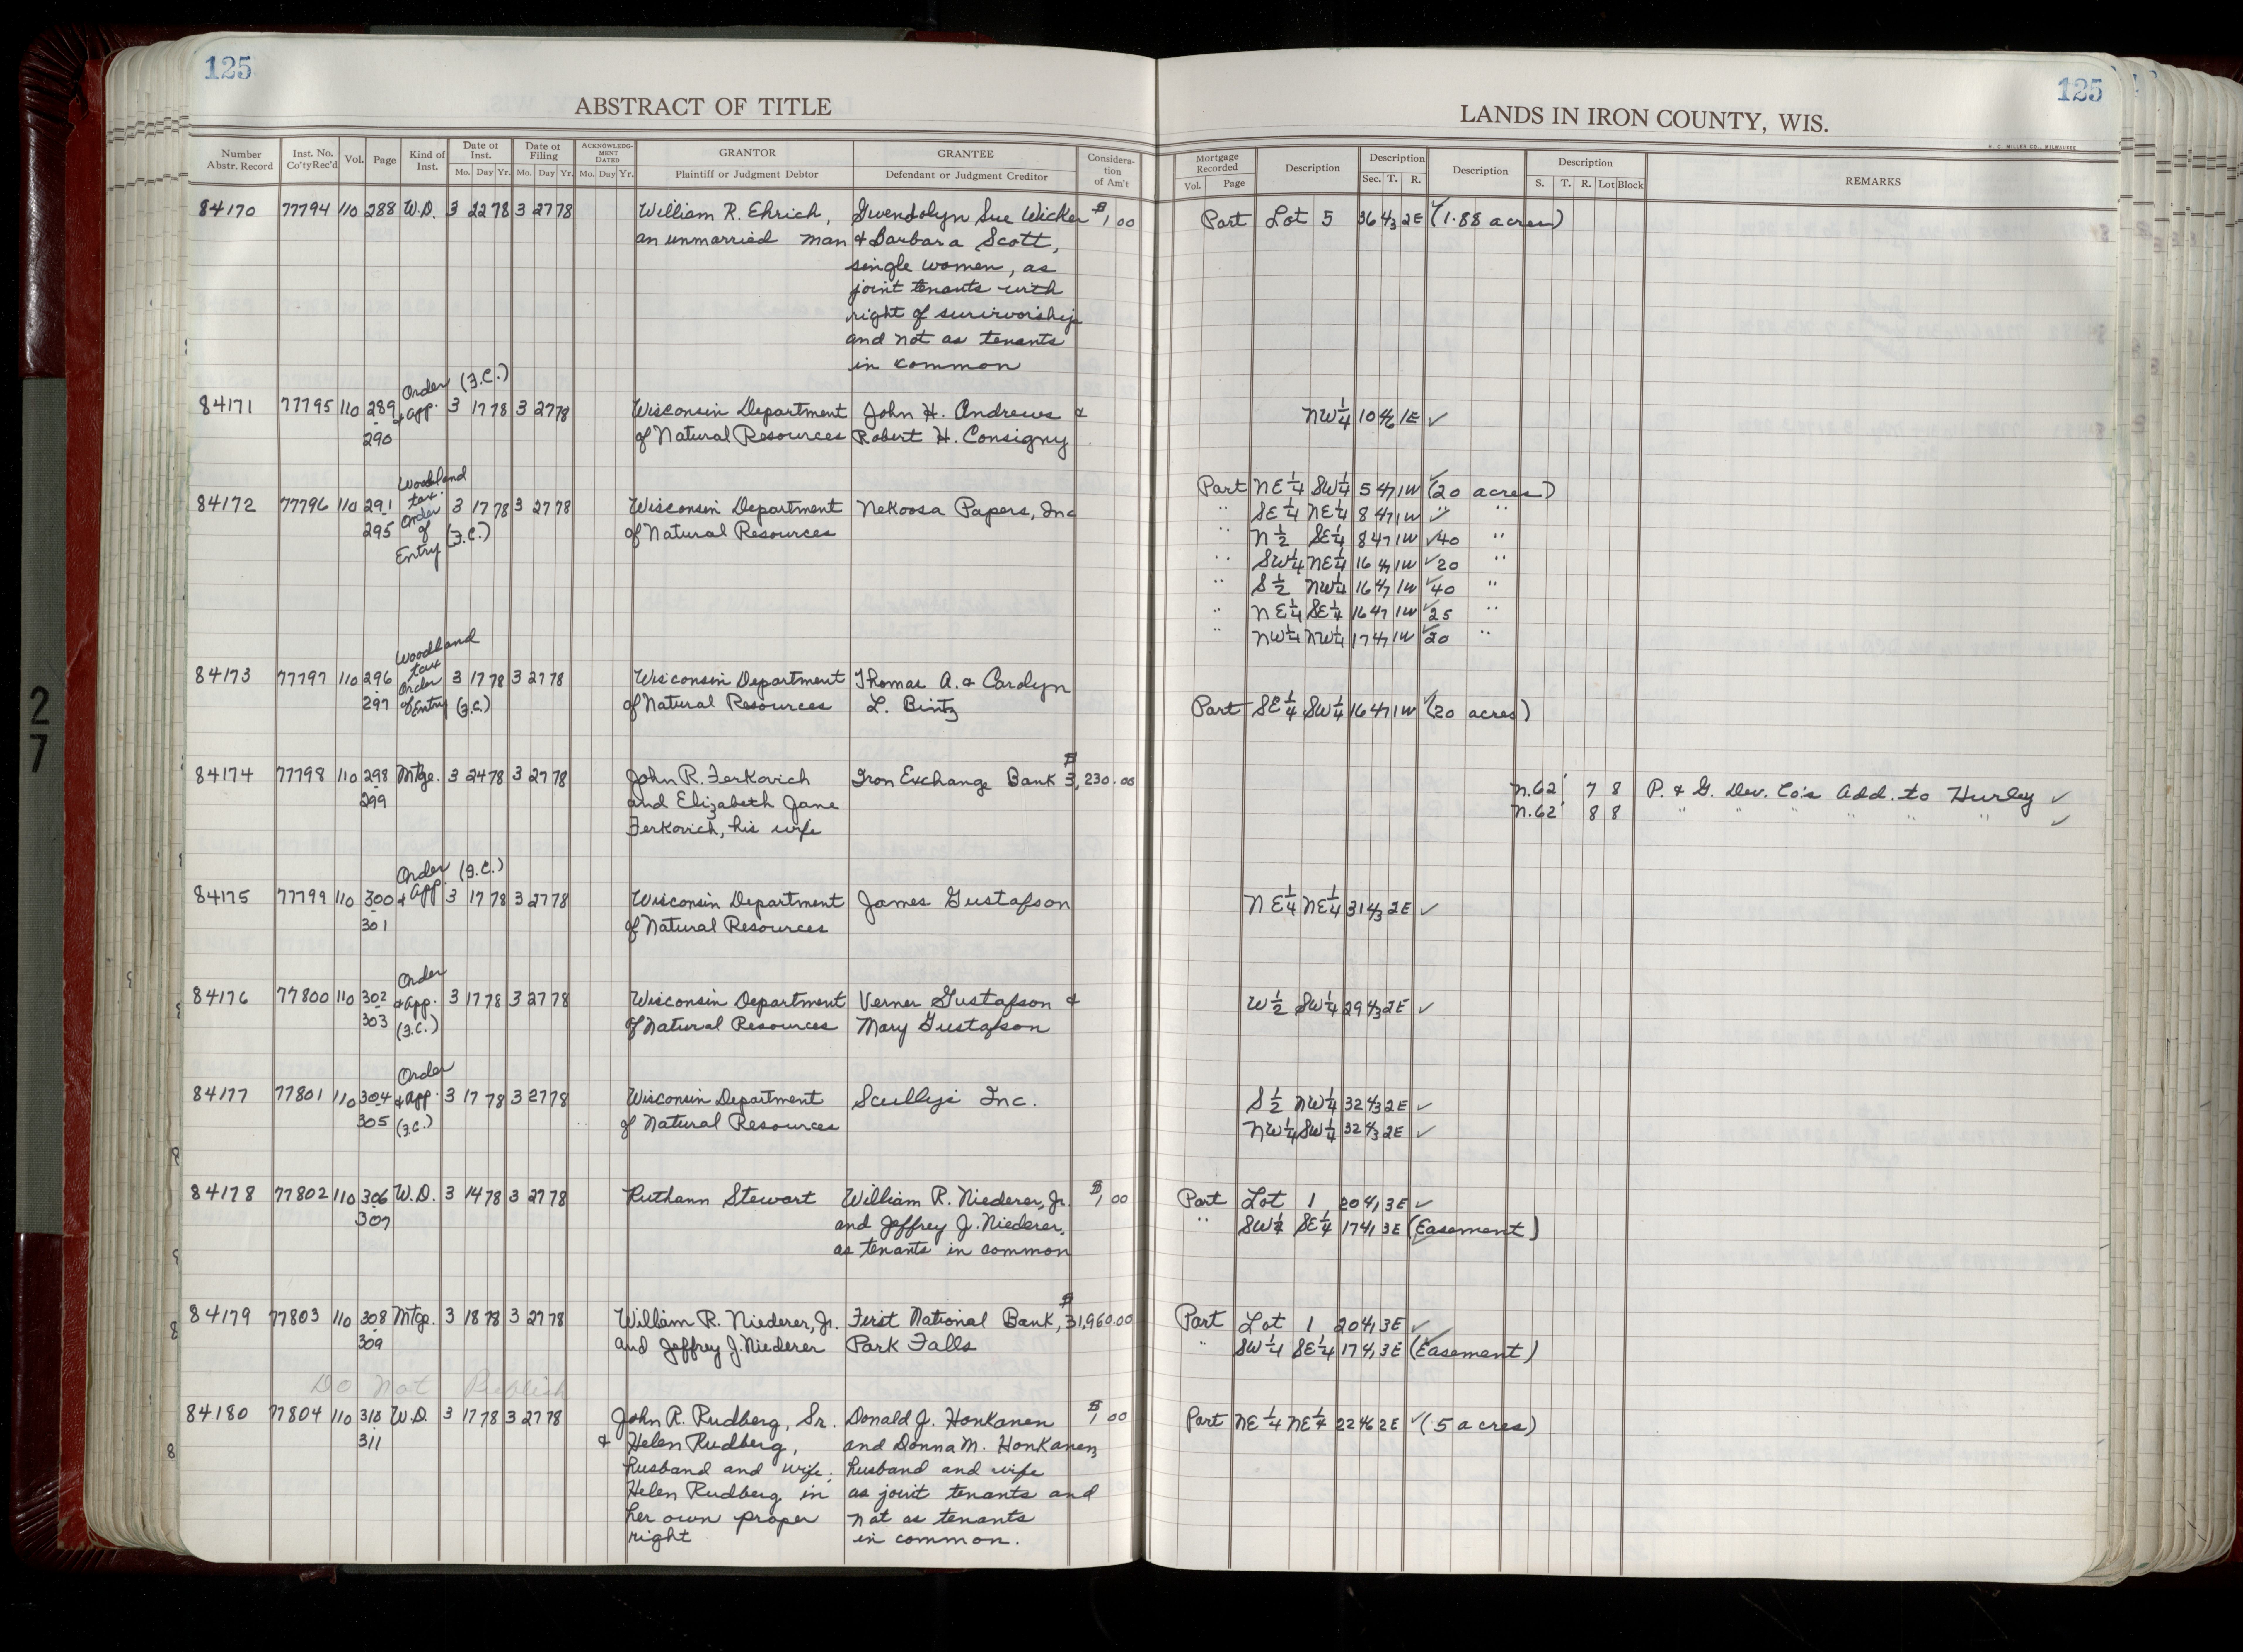 125
125
ABSTRACT OF TITLE
LANDS IN IRON COUNTY, WIS.
H. C. MILLER CO., MILWAUKEE
Number Abstr. Record Inst. No. Co'ty Rec'd Vol. Page Kind of Inst. Date of Inst. Mo. Day Yr. Date of Filing Mo. Day Yr. ACKNOWLEDGMENT DATED Mo. Day Yr. GRANTOR Plaintiff or Judgment Debtor GRANTEE Defendant or Judgment Creditor Consideration of Am't
Mortgage Recorded Vol. Page Description Description Sec. T. R. Description Description S. T. R. Lot Block REMARKS
84170 77794 110 288 W.D. 3 22 78 3 27 78 William R. Ehrich, Gwendolyn Sue Wicker $1,00 Part Lot 5 36 43 2E ✓(1.88 acres)
an unmarried man & Barbara Scott,
single women, as
joint tenants with
right of survivorship
and not as tenants
in common
Order (F.C.)
84171 77795 110 289 & app. 3 17 78 3 27 78 Wisconsin Department John H. Andrews & NW 1/4 10 46 1E ✓
290 of Natural Resources Robert H. Consigny
Woodland
tax Part NE 1/4 SW 1/4 5 47 1W ✓(20 acres)
84172 77796 110 291 Order 3 17 78 3 27 78 Wisconsin Department Nekoosa Papers, Inc " SE 1/4 NE 1/4 8 47 1W ✓ " "
295 of (F.C.) of Natural Resources " N 1/2 SE 1/4 8 47 1W ✓40 "
Entry " SW 1/4 NE 1/4 16 47 1W ✓20 "
" S 1/2 NW 1/4 16 47 1W ✓40 "
" NE 1/4 SE 1/4 16 47 1W ✓25 "
" NW 1/4 NW 1/4 17 47 1W ✓20 "
Woodland
tax
84173 77797 110 296 Order 3 17 78 3 27 78 Wisconsin Department Thomas A. & Carolyn
297 of Entry (F.C.) of Natural Resources L. Bintz Part SE 1/4 SW 1/4 16 47 1W ✓(20 acres)
84174 77798 110 298 Mtge. 3 24 78 3 27 78 John R. Ferkovich Iron Exchange Bank $3,230.00 N.62' 7 8 P. & G. Dev. Co's Add. to Hurley ✓
299 and Elizabeth Jane N.62' 8 8 " " " " " " ✓
Ferkovich, his wife
Order (F.C.)
84175 77799 110 300 & app. 3 17 78 3 27 78 Wisconsin Department James Gustafson NE 1/4 NE 1/4 31 43 2E ✓
301 of Natural Resources
Order
84176 77800 110 302 & app. 3 17 78 3 27 78 Wisconsin Department Verner Gustafson & W 1/2 SW 1/4 29 43 2E ✓
303 (F.C.) of Natural Resources Mary Gustafson
Order
84177 77801 110 304 & app. 3 17 78 3 27 78 Wisconsin Department Scullys Inc. S 1/2 NW 1/4 32 43 2E ✓
305 (F.C.) of Natural Resources NW 1/4 SW 1/4 32 43 2E ✓
84178 77802 110 306 W.D. 3 14 78 3 27 78 Ruthann Stewart William R. Niederer, Jr. $1,00 Part Lot 1 20 41 3E ✓
307 and Jeffrey J. Niederer, " SW 1/4 SE 1/4 17 41 3E (Easement)
as tenants in common
84179 77803 110 308 Mtge. 3 18 78 3 27 78 William R. Niederer, Jr. First National Bank, $31,960.00 Part Lot 1 20 41 3E ✓
309 and Jeffrey J. Niederer Park Falls " SW 1/4 SE 1/4 17 41 3E (Easement)
Do Not Publish
84180 77804 110 310 W.D. 3 17 78 3 27 78 John R. Rudberg, Sr. Donald J. Honkanen $1,00 Part NE 1/4 NE 1/4 22 46 2E ✓(.5 acres)
311 & Helen Rudberg, and Donna M. Honkanen,
husband and wife; husband and wife
Helen Rudberg in as joint tenants and
her own proper not as tenants
right in common.
27